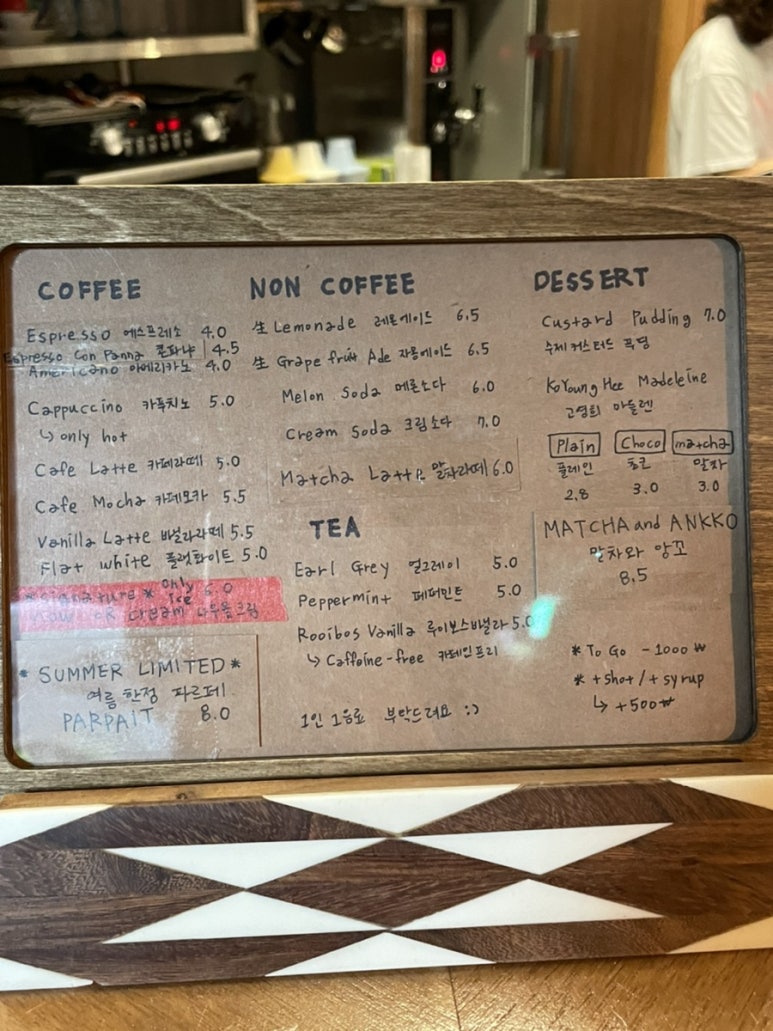 COFFEE
Espresso 에스프레소 4.0
Espresso Con Panna 콘파냐 4.5
Americano 아메리카노 4.0
Cappuccino 카푸치노 5.0
↳ only hot
Cafe Latte 카페라떼 5.0
Cafe Mocha 카페모카 5.5
Vanilla Latte 바닐라라떼 5.5
Flat white 플랫화이트 5.0
*signature* only ice 6.0
OR cream 나무올크림
*SUMMER LIMITED*
여름 한정 파르페
PARPAIT 8.0
NON COFFEE
生 Lemonade 레몬에이드 6.5
生 Grape fruit Ade 자몽에이드 6.5
Melon Soda 메론소다 6.0
Cream Soda 크림소다 7.0
Matcha Latte 말차라떼 6.0
TEA
Earl Grey 얼그레이 5.0
Peppermint 페퍼민트 5.0
Rooibos Vanilla 루이보스바닐라 5.0
↳ Caffeine-free 카페인프리
1인 1음료 부탁드려요 :)
DESSERT
Custard Pudding 7.0
수제 커스터드 푸딩
KoYoungHee Madeleine
고영희 마들렌
Plain Choco matcha
플레인 초코 말차
2.8 3.0 3.0
MATCHA and ANKKO
말차와 앙꼬
8.5
* To Go - 1000 ₩
* + shot / + syrup
↳ + 500₩